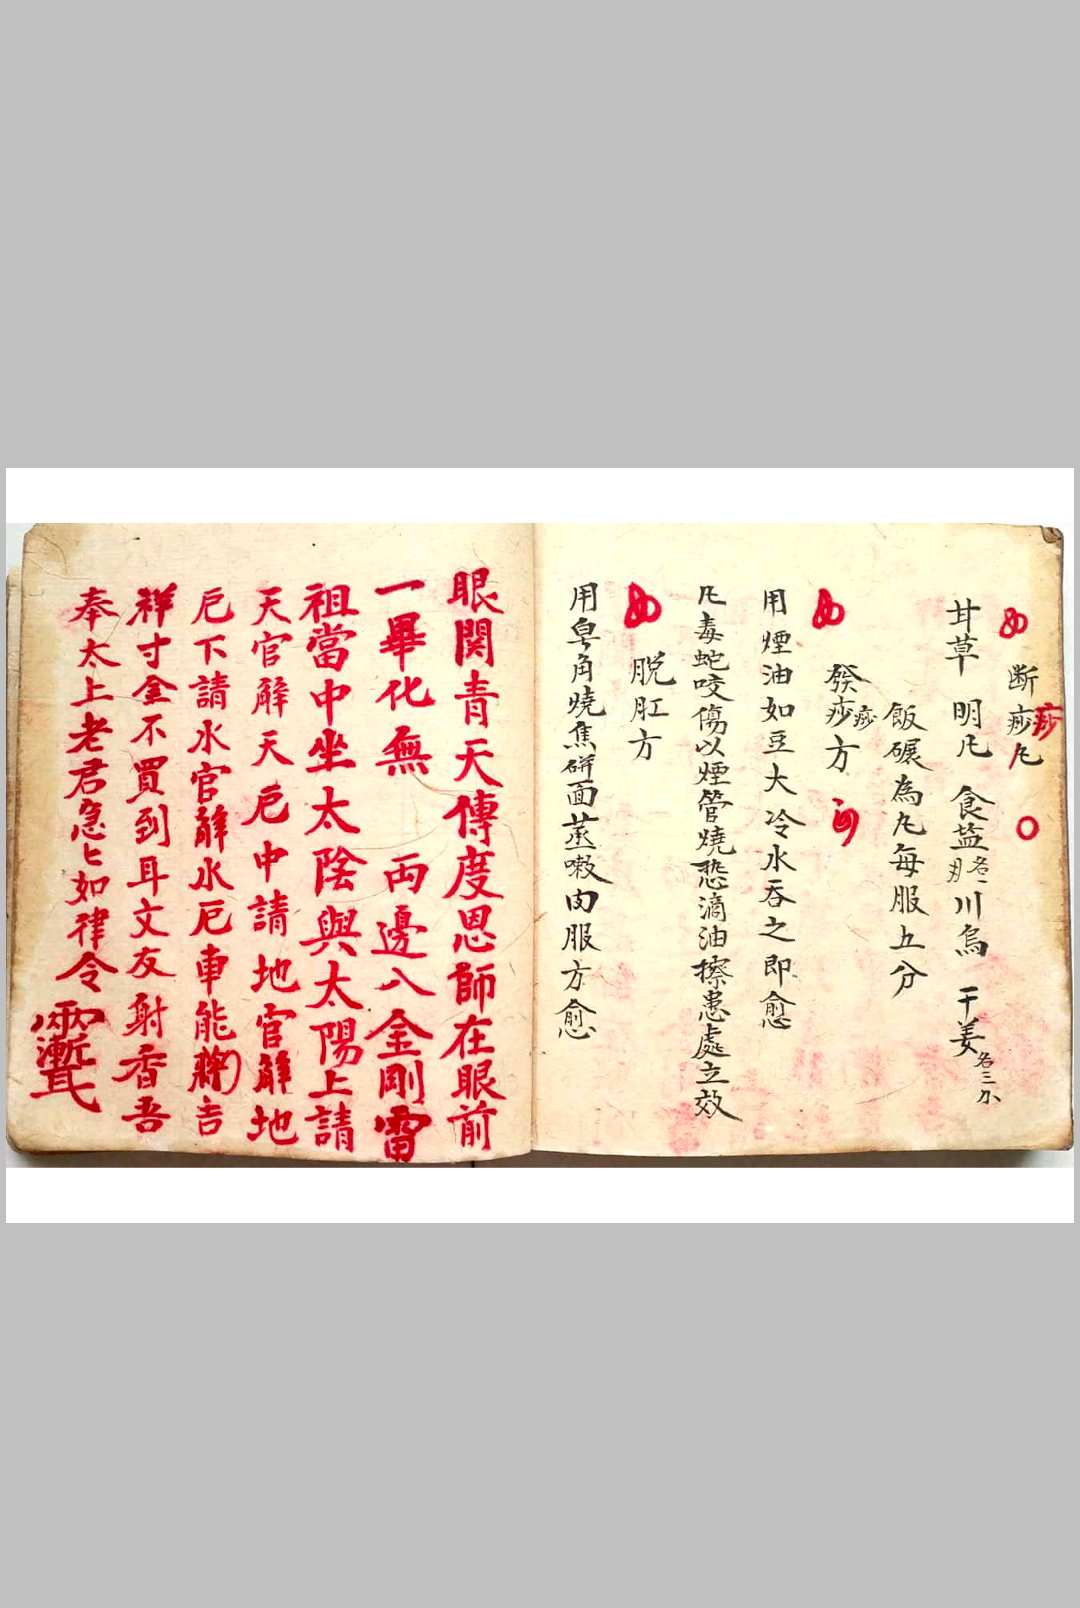 断痧凡
痧
甘草 明凡 食盐各一月川烏 干姜各三分
飯碾為凡每服五分
發痧方
痧
用煙油如豆大冷水吞之即愈
凡毒蛇咬傷以煙管燒热滴油擦患處立效
脱肛方
用皂角燒焦研面蒸嗽肉服方愈
眼関青天傳度恩師在眼前
一畢化無 両邊八金剛雷
祖當中坐太陰與太陽上請
天官解天厄中請地官解地
厄下請水官解水厄車能将吉
祥寸金不買到耳文友射香吾
奉太上老君急匕如律令